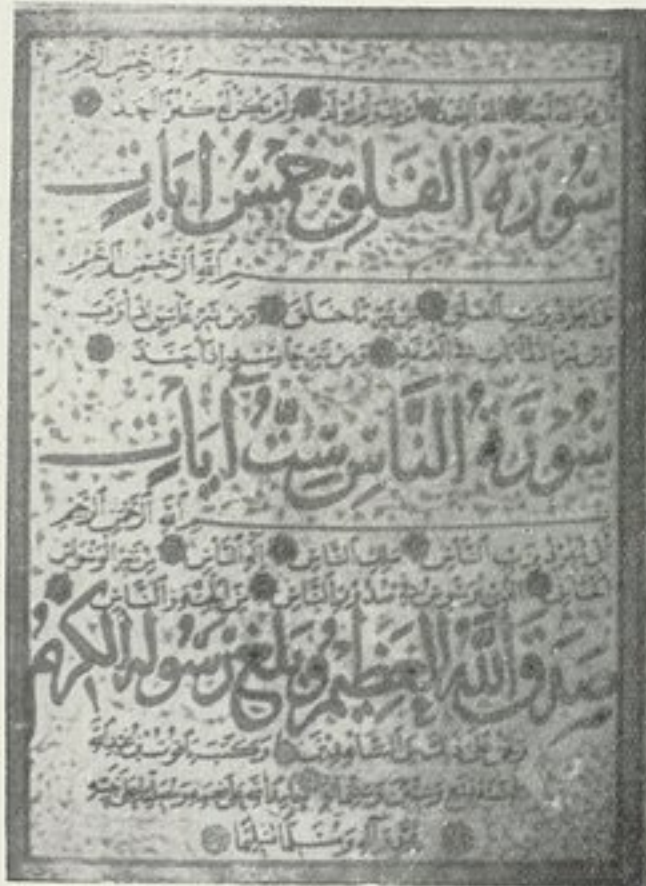 بسم الله الرحمن الرحيم
قل هو الله أحد الله الصمد لم يلد ولم يولد ولم يكن له كفوا أحد
سُورَةُ الفَلَقِ خَمْسُ آيَاتٍ
بسم الله الرحمن الرحيم
قل أعوذ برب الفلق من شر ما خلق ومن شر غاسق إذا وقب
ومن شر النفاثات في العقد ومن شر حاسد إذا حسد
سُورَةُ النَّاسِ سِتُّ آيَاتٍ
بسم الله الرحمن الرحيم
قل أعوذ برب الناس ملك الناس إله الناس من شر الوسواس
الخناس الذي يوسوس في صدور الناس من الجنة والناس
صَدَقَ اللهُ العَظِيمُ وَبَلَّغَ رَسُولُهُ الكَرِيمُ
ونحن على ذلك من الشاهدين وكتب
وآله وسلم تسليما